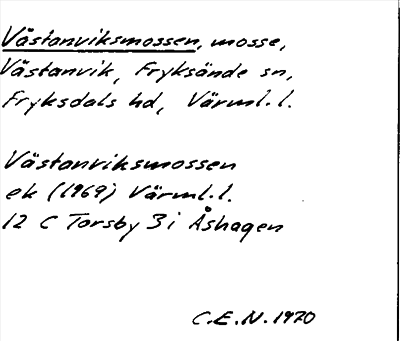 Västanviksmossen, mosse,
Västanvik, Fryksände sn,
Fryksdals hd, Värml. l.
Västanviksmossen
ek (1969) Värml. l.
12 C Torsby 3 i Åshagen
C.E.N. 1970